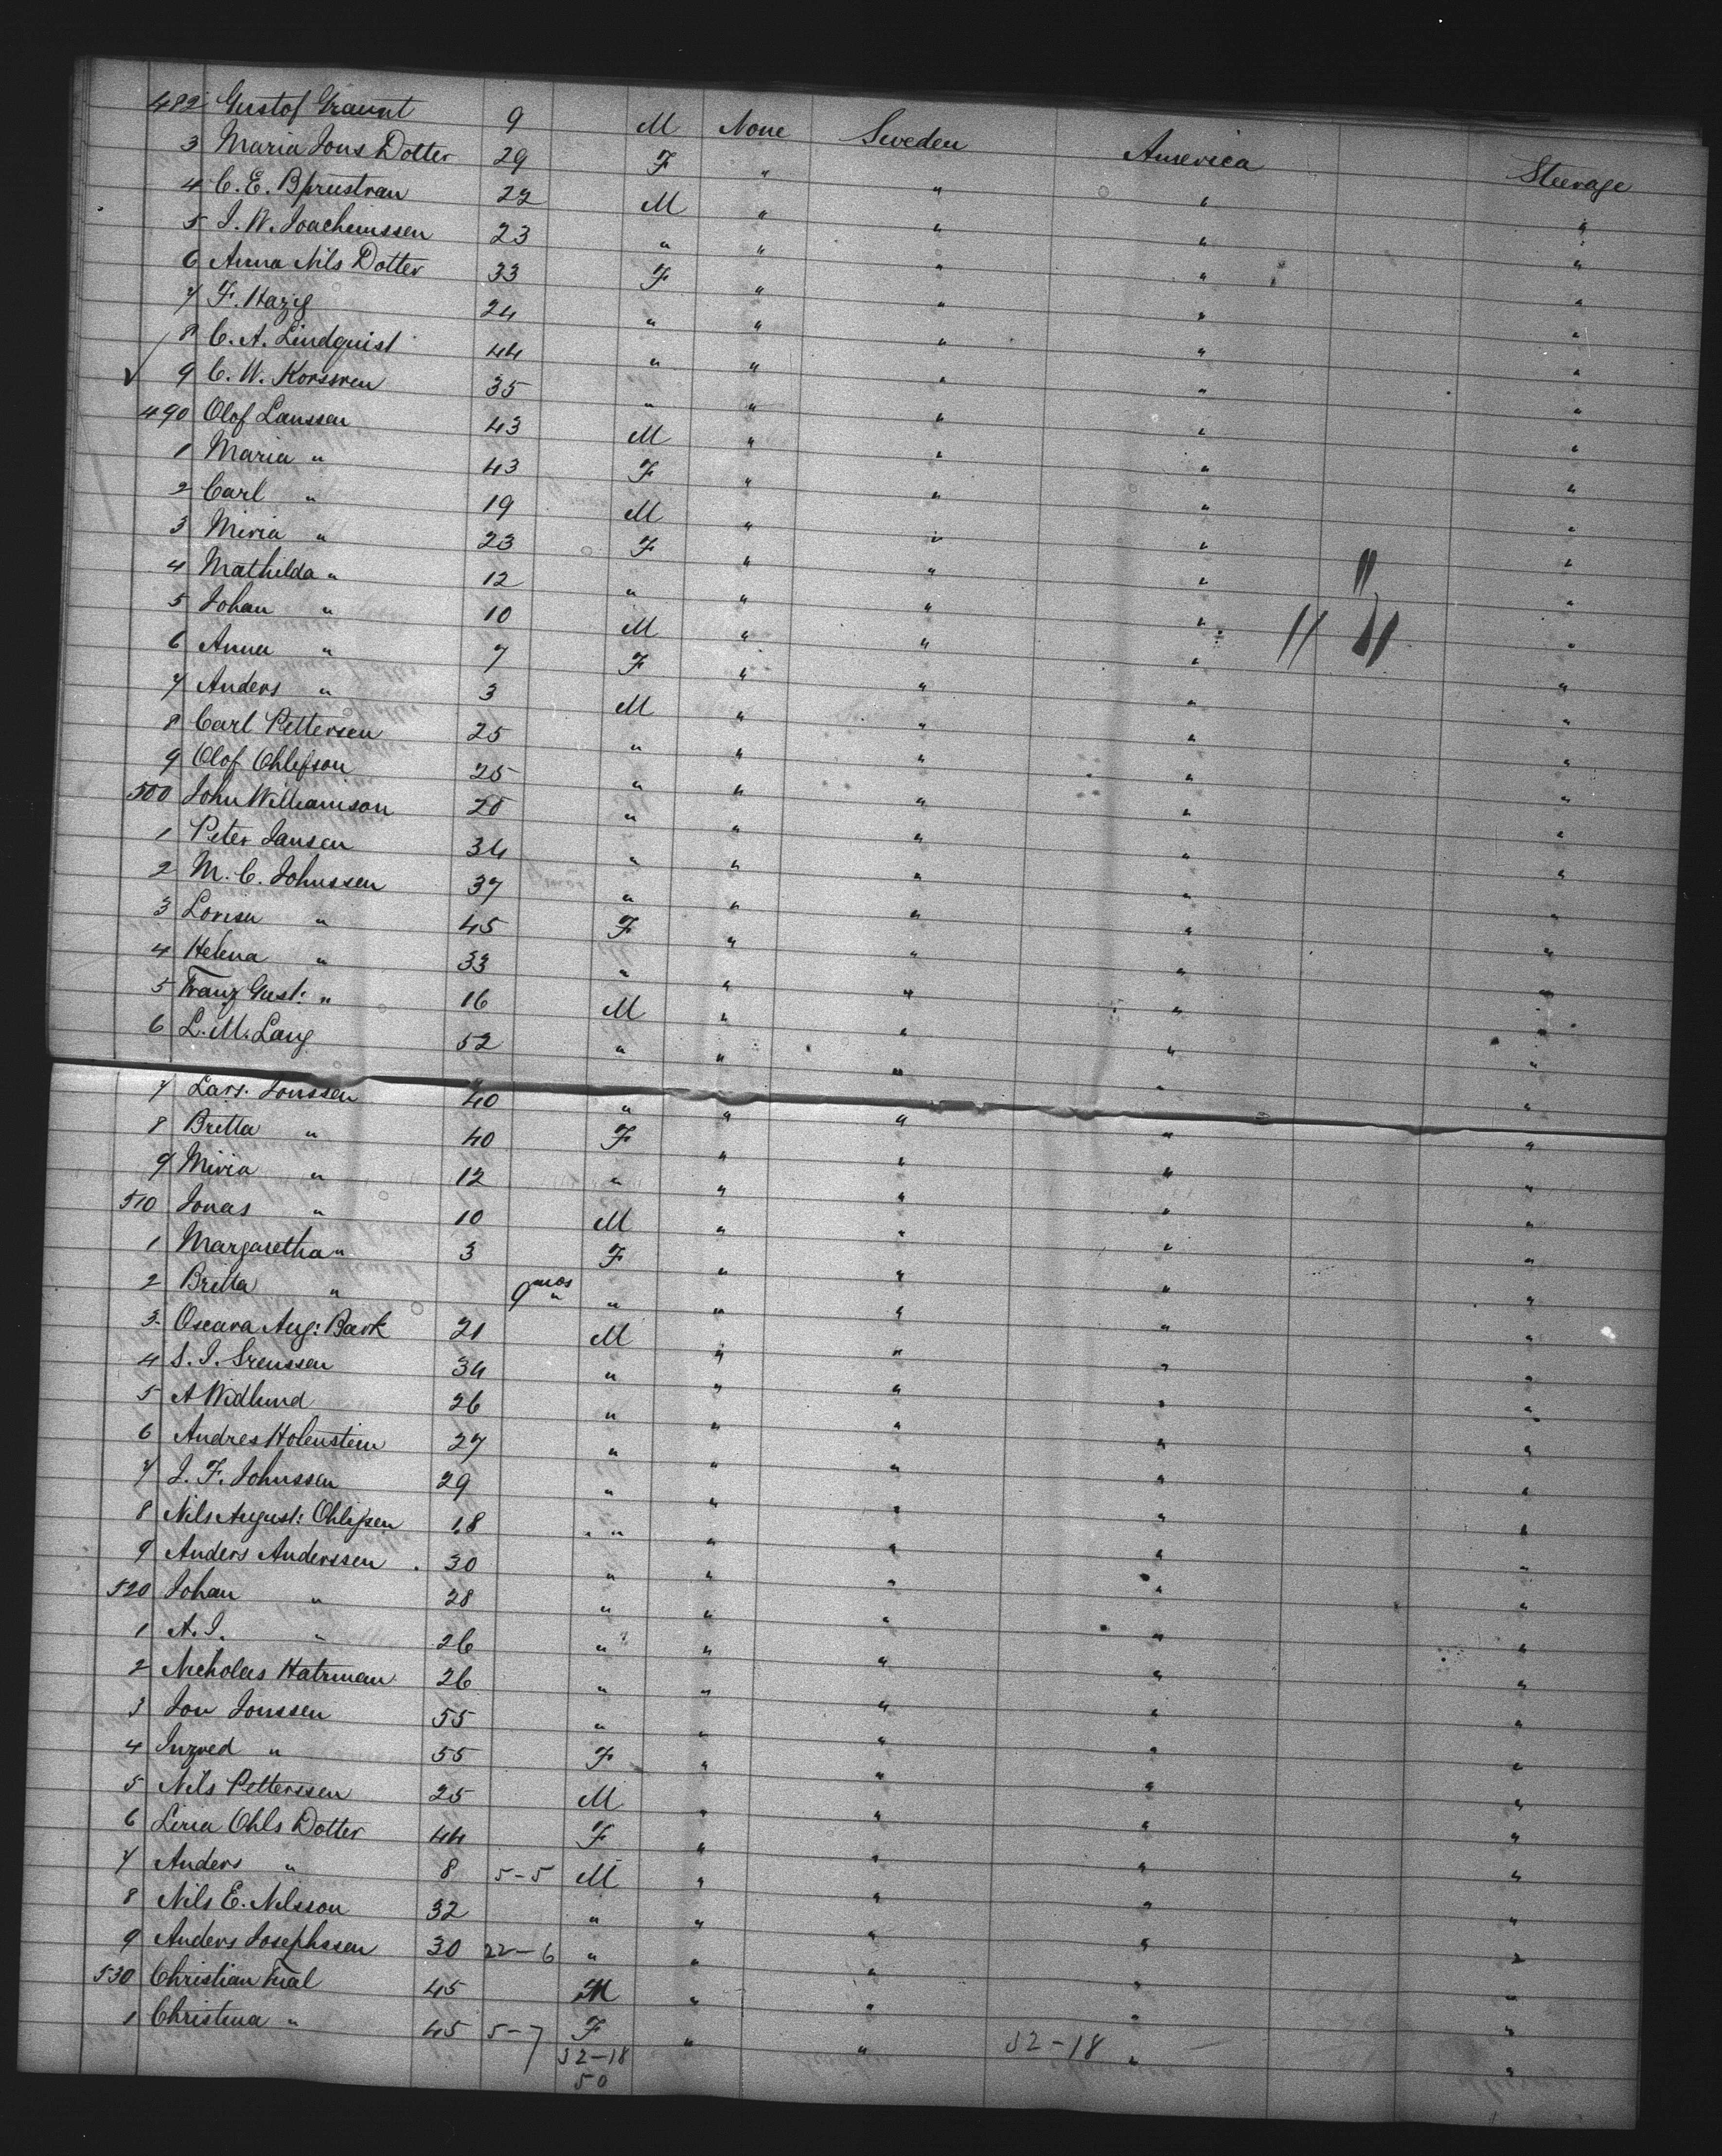 482 Gustof Graunt 9 M None Sweden America Steerage
3 Maria Jons Dotter 29 F " " " "
4 C. E. 22 M " " " "
5 J. W. Joachimssen 23 " " " " "
6 Anna Nils Dotter 33 F " " " "
7 F. Hazig 24 " " " " "
8 C. A. Lindquist 44 " " " " "
9 C. W. Korsvren 35 " " " " "
490 Olof Lanssen 43 M " " " "
1 Maria " 43 F " " " "
2 Carl " 19 M " " " "
3 Miria " 23 F " " " "
4 Mathilda " 12 " " " " "
5 Johan " 10 M " " " "
6 Anna " 7 F " " " "
7 Anders " 3 M " " " "
8 Carl Pettersen 25 " " " " "
9 Olof Ohlefson 25 " " " " "
500 John Williamson 28 " " " " "
1 Peter Jansen 34 " " " " "
2 M. C. Johnssen 37 " " " " "
3 Lovisa " 45 F " " " "
4 Helena " 33 " " " " "
5 Franz Gust: " 16 M " " " "
6 L. M. Lang 52 " " " " "
7 Lars. Jonssen 40 " " " " "
8 Britta " 40 F " " " "
9 Miria " 12 " " " " "
510 Jonas " 10 M " " " "
1 Margaretha " 3 F " " " "
2 Britta " 9 mos " " " " "
3 Oscara Aug: Bark 21 M " " " "
4 S. J. Srenssen 34 " " " " "
5 A Widlund 26 " " " " "
6 Andres Holenstein 27 " " " " "
7 J. F. Johnssen 29 " " " " "
8 Nils August: Ohlifsen 18 " " " " "
9 Anders Anderssen 30 " " " " "
520 Johan " 28 " " " " "
1 A. J. " 26 " " " " "
2 Nicholas Hatrman 26 " " " " "
3 Jon Jonssen 55 " " " " "
4 Ingred " 55 F " " " "
5 Nils Petterssen 25 M " " " "
6 Lena Ohls Dotter 44 F " " " "
7 Anders " 8 5-5 M " " " "
8 Nils E. Nilsson 32 " " " " "
9 Anders Josephssen 30 22-6 " " " " "
530 Christian Fral 45 M " " " "
1 Christina " 45 5-7 F " " " "
32-18 32-18
50